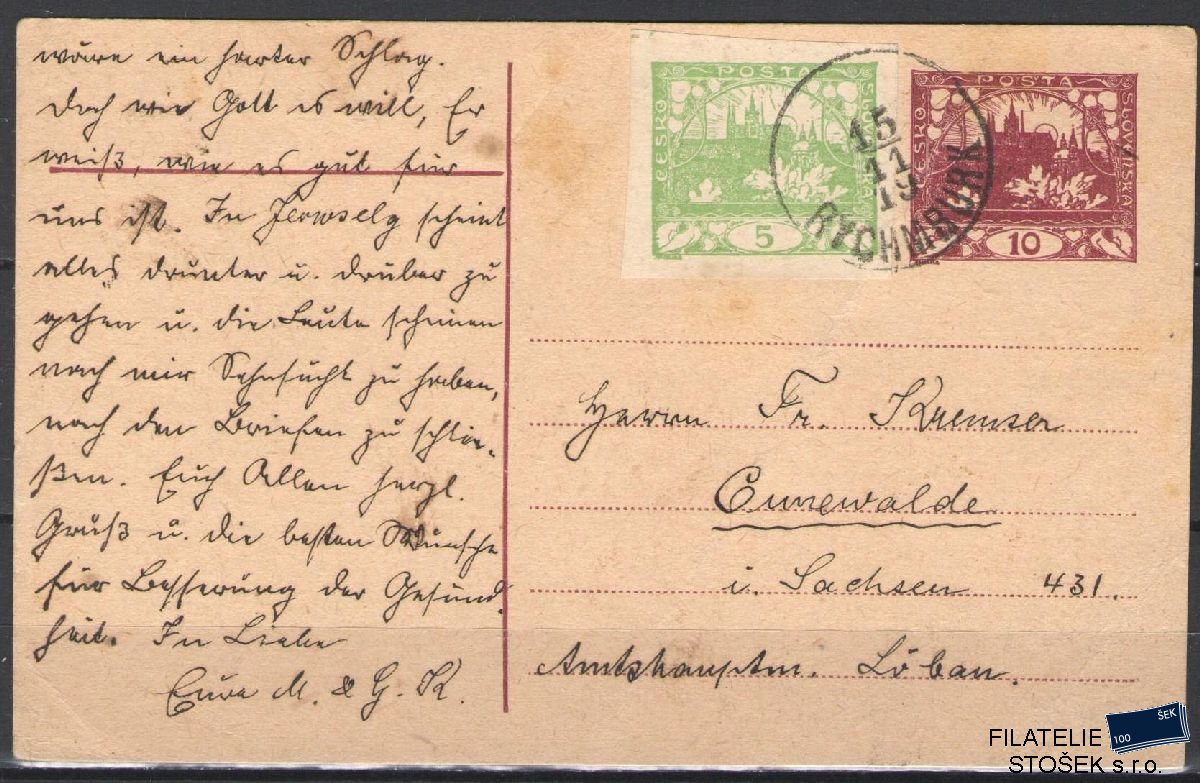 wäre ein harter Schlag.
Doch wie Gott es will, Er
weiß, wie es gut für
uns ist. In scheint
alles drunter u. drüber zu
gehen u. die Leute scheinen
nach mir Sehnsucht zu haben,
nach den Briefen zu schlie-
ßen. Euch Allen herzl.
Gruß u. die besten Wünsche
für Besserung der Gesund
heit. In Liebe
Eure M. & G. K.
POSTA
ČESKO
SLOVENSKÁ
5
POSTA
ČESKO
SLOVENSKÁ
10
15
11
19
RYCHMBURK
Herrn Fr. Kremser
Cunewalde
i. Sachsen 431.
Amtshauptm. Löbau.
FILATELIE
STOŠEK s.r.o.
100
ŠEK